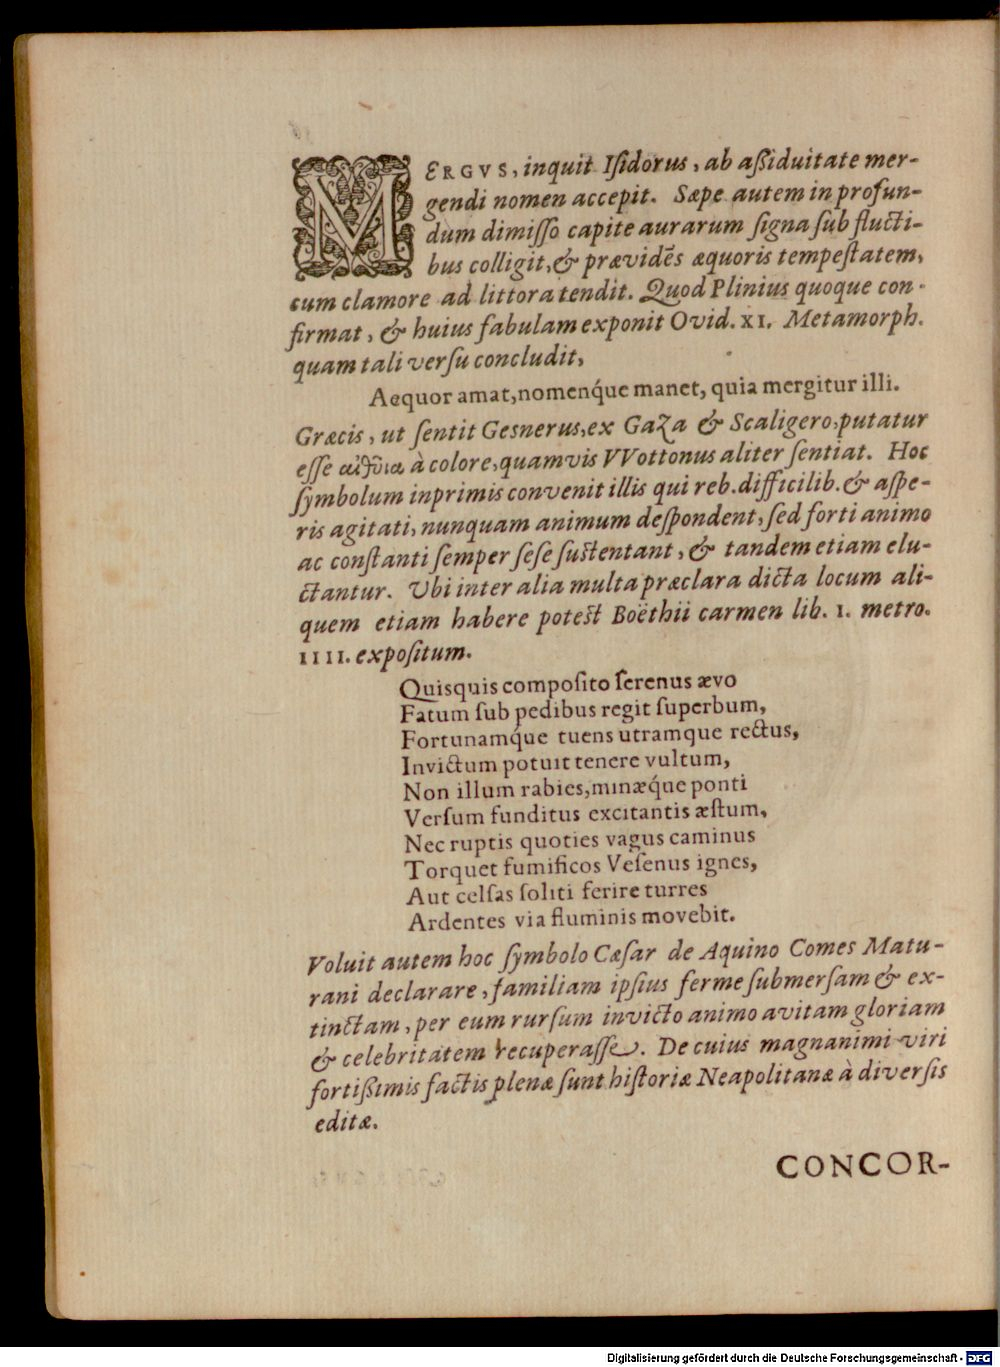 MERGVS, inquit Isidorus, ab aßiduitate mer-
gendi nomen accepit. Sæpe autem in profun-
dum dimisso capite aurarum signa sub flucti-
bus colligit, & prævidēs æquoris tempestatem,
cum clamore ad littora tendit. Quod Plinius quoque con-
firmat, & huius fabulam exponit Ovid. XI. Metamorph.
quam tali versu concludit,
Aequor amat, nomenq́ue manet, quia mergitur illi.
Græcis, ut sentit Gesnerus, ex Gaza & Scaligero, putatur
esse αἴθυια à colore, quamvis VVottonus aliter sentiat. Hoc
symbolum inprimis convenit illis qui reb. difficilib. & aspe-
ris agitati, nunquam animum despondent, sed forti animo
ac constanti semper sese sustentant, & tandem etiam elu-
ctantur. Ubi inter alia multa præclara dicta locum ali-
quem etiam habere potest Boëthii carmen lib. I. metro.
IIII. expositum.
Quisquis composito serenus ævo
Fatum sub pedibus regit superbum,
Fortunamq́ue tuens utramque rectus,
Invictum potuit tenere vultum,
Non illum rabies, minæq́ue ponti
Versum funditus excitantis æstum,
Nec ruptis quoties vagus caminus
Torquet fumificos Vesenus ignes,
Aut celsas soliti ferire turres
Ardentes via fluminis movebit.
Voluit autem hoc symbolo Cæsar de Aquino Comes Matu-
rani declarare, familiam ipsius ferme submersam & ex-
tinctam, per eum rursum invicto animo avitam gloriam
& celebritatem recuperasse. De cuius magnanimi viri
fortißimis factis plenæ sunt historiæ Neapolitanæ à diversis
editæ.
CONCOR-
Digitalisierung gefördert durch die Deutsche Forschungsgemeinschaft - DFG